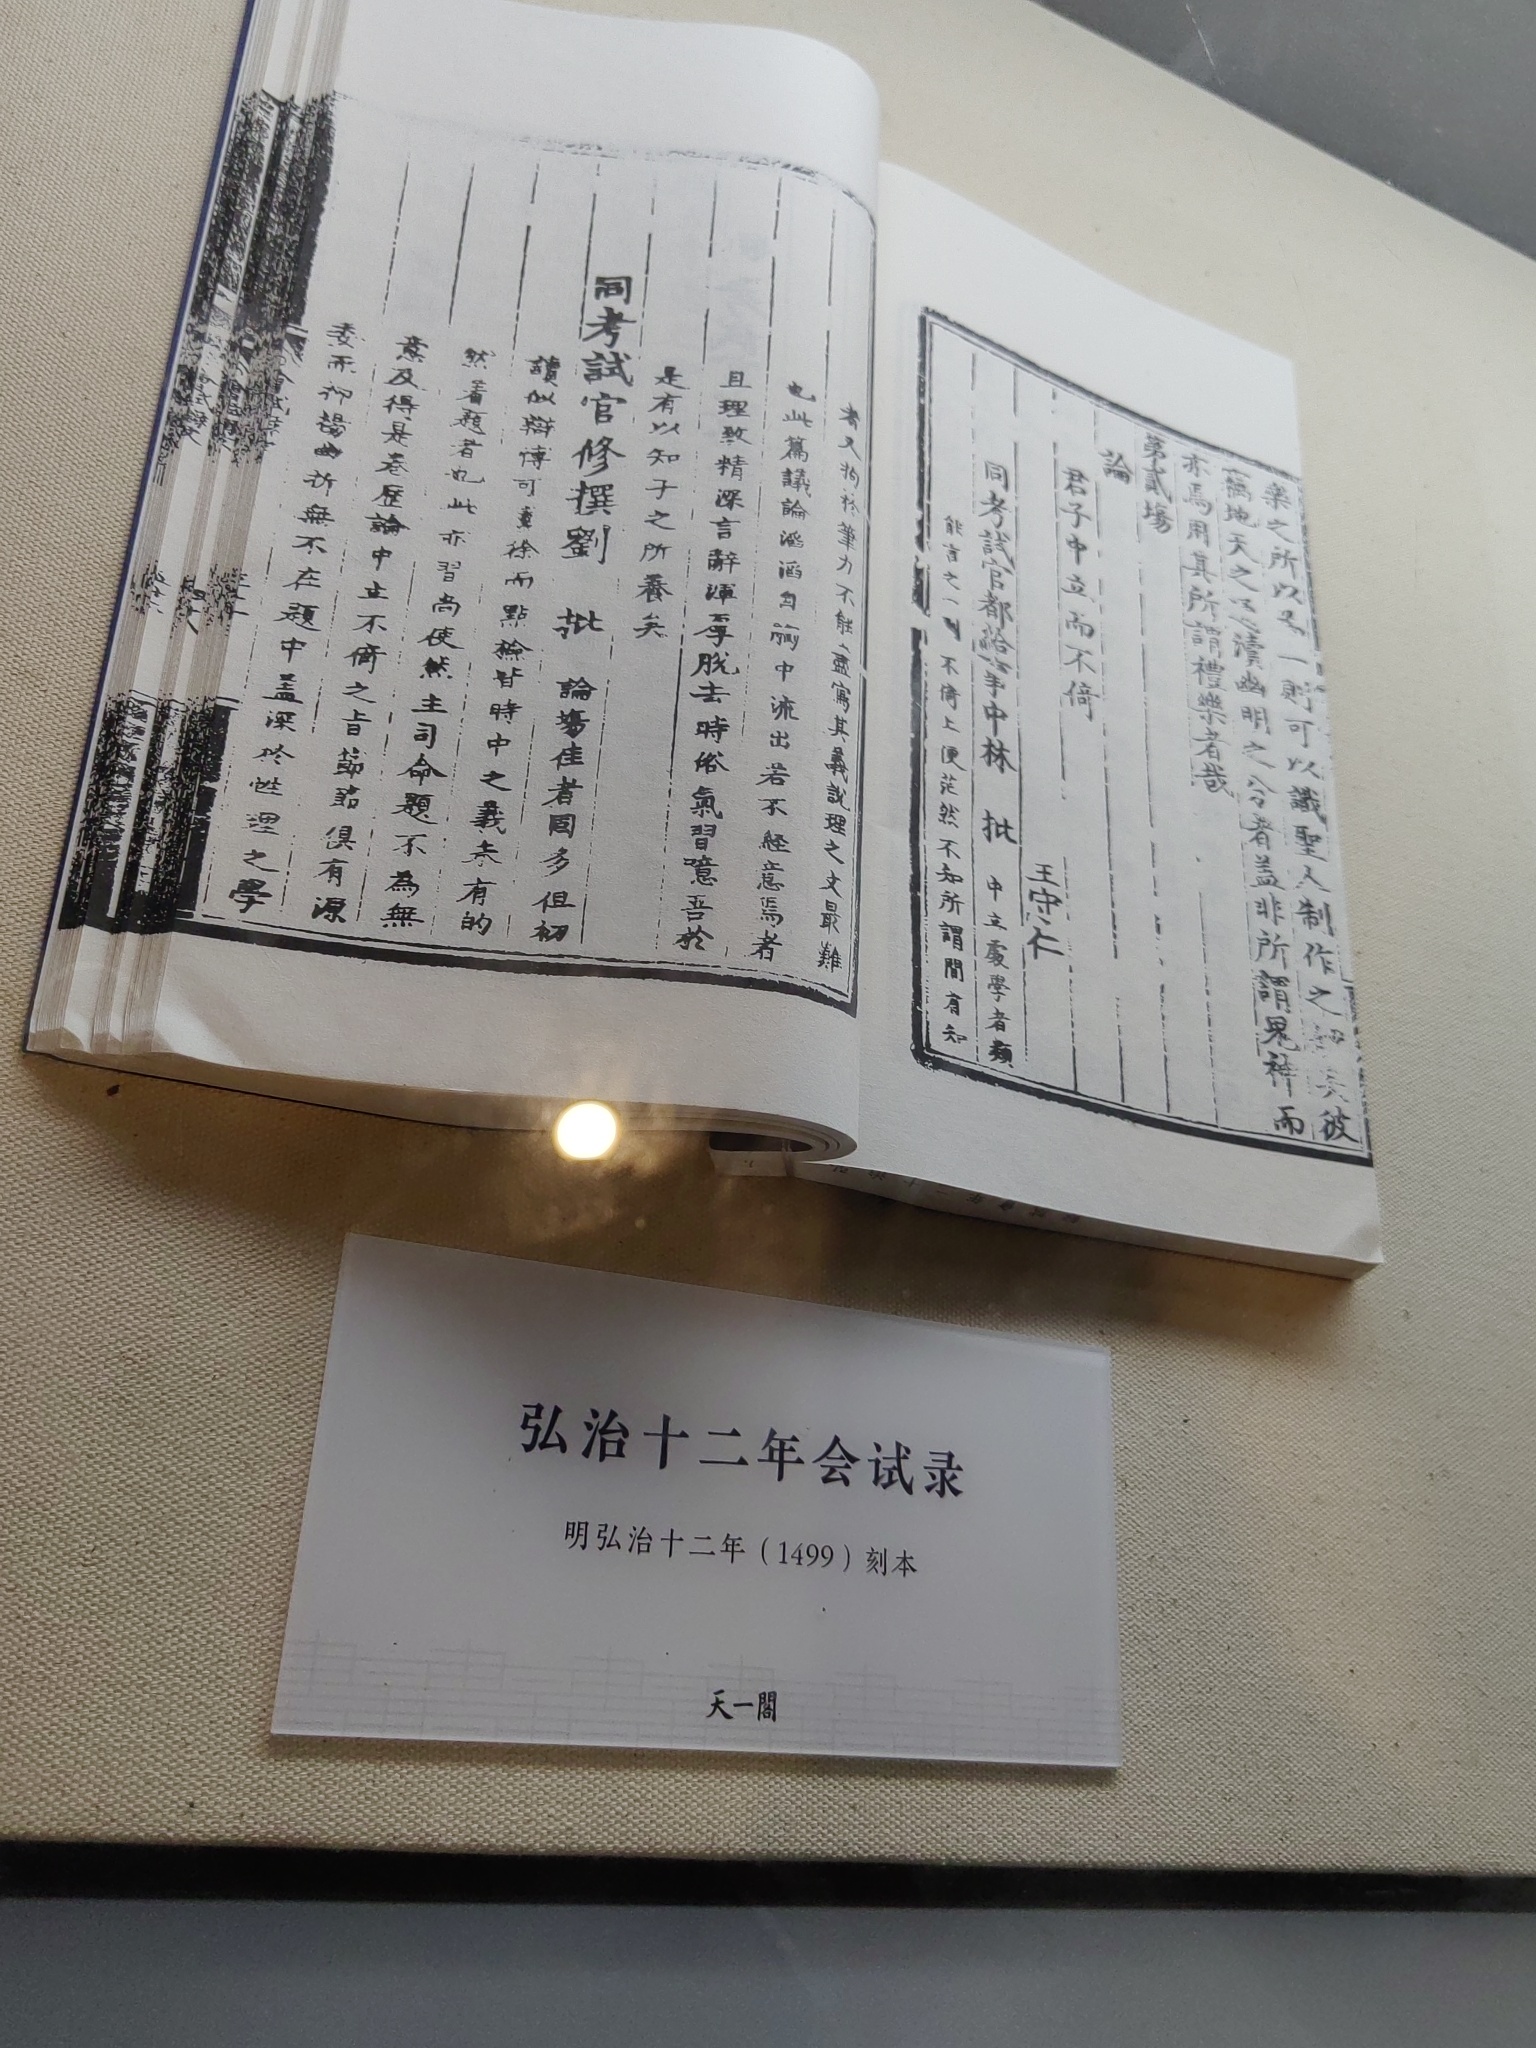 樂之所以為一則可以識聖人制作之
彼
一蓊地天之心瀆幽明之分者益非所謂鬼神而
亦焉用其所謂禮樂者哉
第貳塲
論
君子中立而不倚
王守仁
同考試官都給事中林 批 中立處學者類
能言之 不倚上便茫然不知所謂間有知
者又拘於筆力不能盡寫其義說理之文最難
也此篇議論滔滔自胸中流出若不經意焉者
且理致精深言辭渾厚脫去時俗氣習噫吾於
是有以知子之所養矣
同考試官修撰劉 批 論塲佳者固多但初
讀似辯博可喜徐而點檢皆時中之義求有的
然着題者也此亦習尚使然主司命題不為無
意及得是卷歷論中立不倚之旨節節俱有源
委而抑揚曲折無不在題中盖深於性理之學
弘治十二年会试录
明弘治十二年(1499)刻本
天一閣